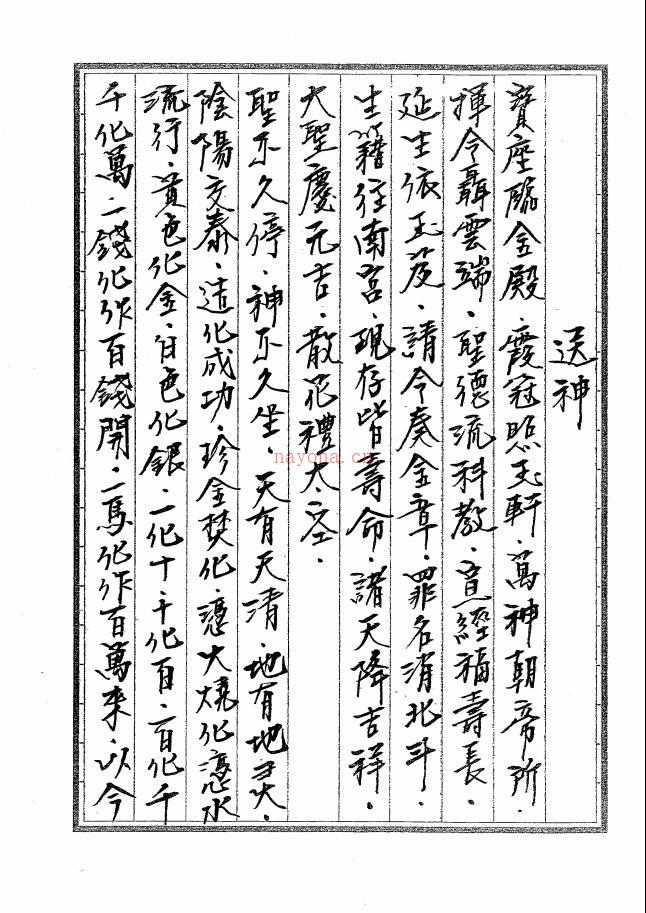 送神
寶座臨金殿．霞冠照玉軒．萬神朝帝所．
揮令聶雲端．聖德流科教．道經福壽長．
延生依玉及．請令奏金章．罪名消北斗．
生籍往南宮．現存皆壽命．諸天降吉祥．
大聖慶元吉．散花禮太空．
聖不久停．神不久坐．天有天清．地有地灵．
陰陽交泰．造化成功．珍金焚化．憑火燒化憑水
流行．黃色化金．白色化銀．一化十．十化百．百化千
千化萬．一錢化作百錢開．一馬化作百萬來．以今
nayona.cn